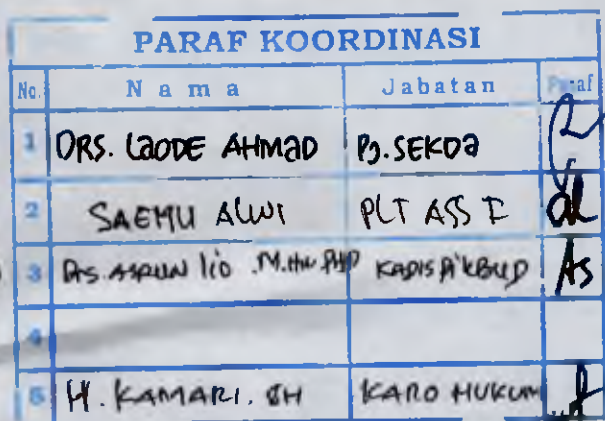 PARAF KOORDINASI
No. Nama Jabatan Paraf
1 DRS. LAODE AHMAD PJ. SEKDA
2 SAEMU ALWI PLT ASS I
3 DRS. ASRUN LIO .M.Hum PHD KADIS DIKBUD As
4
5 H. KAMARI. SH KARO HUKUM